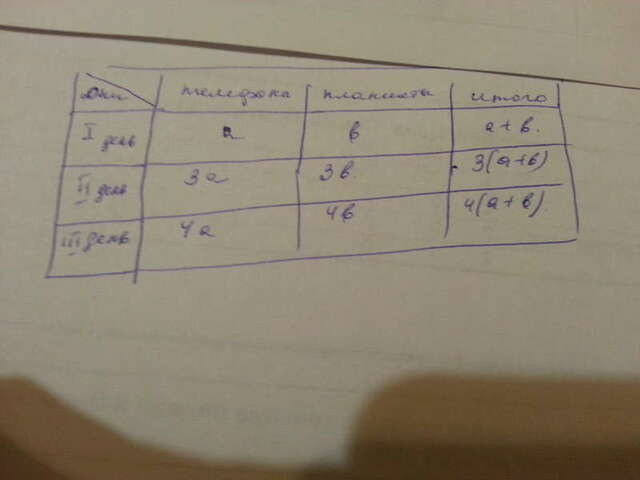 Дни телефона планшеты итого
I день a в a+в.
II день 3a 3в. 3(a+в)
III день 4a 4в 4(a+в).